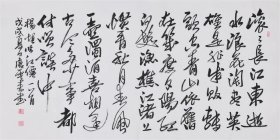 滚々長江東逝
水浪花淘盡英
雄是非成敗轉
頭空青山依舊
在幾度夕陽紅白
髮漁樵江渚上
慣看秋月春風
一壺濁酒喜相逢
古今多少事都
付笑談中
楊慎臨江仙一首
戊戌